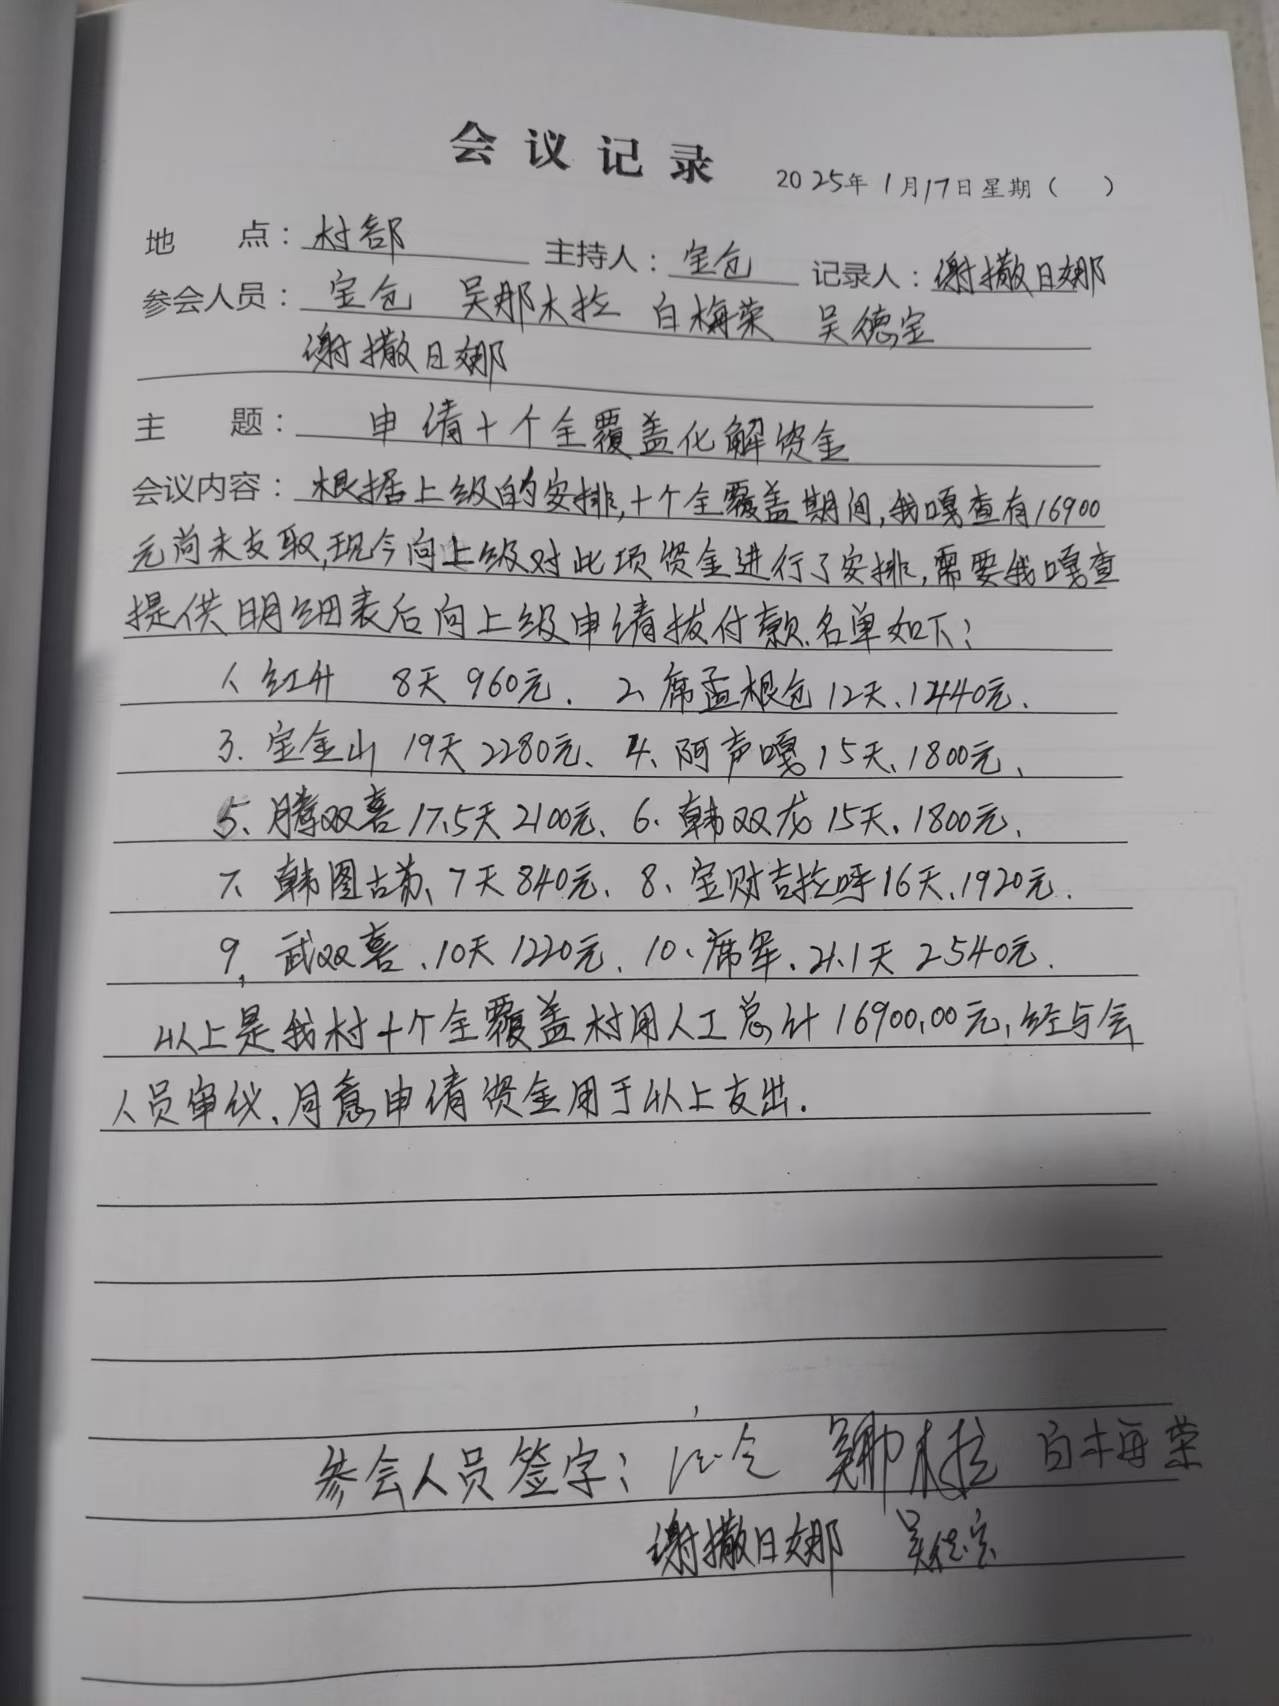 会议记录 2025年1月17日星期（ ）
地 点：村部 主持人：宝仓 记录人：谢撒日娜
参会人员：宝仓 吴那木拉 白梅荣 吴德宝
谢撒日娜
主 题：申请十个全覆盖化解资金
会议内容：根据上级的安排，十个全覆盖期间，我嘎查有16900
元尚未支取，现今向上级对此项资金进行了安排，需要我嘎查
提供明细表后向上级申请拔付款.名单如下：
1、红升 8天 960元. 2、席孟根仓12天、1440元.
3、宝金山 19天2280元、4、阿声嘎15天、1800元、
5、腾双喜17.5天2100元、6、韩双龙15天、1800元、
7、韩图古苏、7天840元、8、宝财吉拉呼16天、1920元.
9、武双喜、10天1220元、10、席军、21.1天 2540元.
以上是我村十个全覆盖村用人工总计16900.00元，经与会
人员审议、同意申请资金用于以上支出.
参会人员签字： 吴那木拉 白梅荣
谢撒日娜 吴德宝